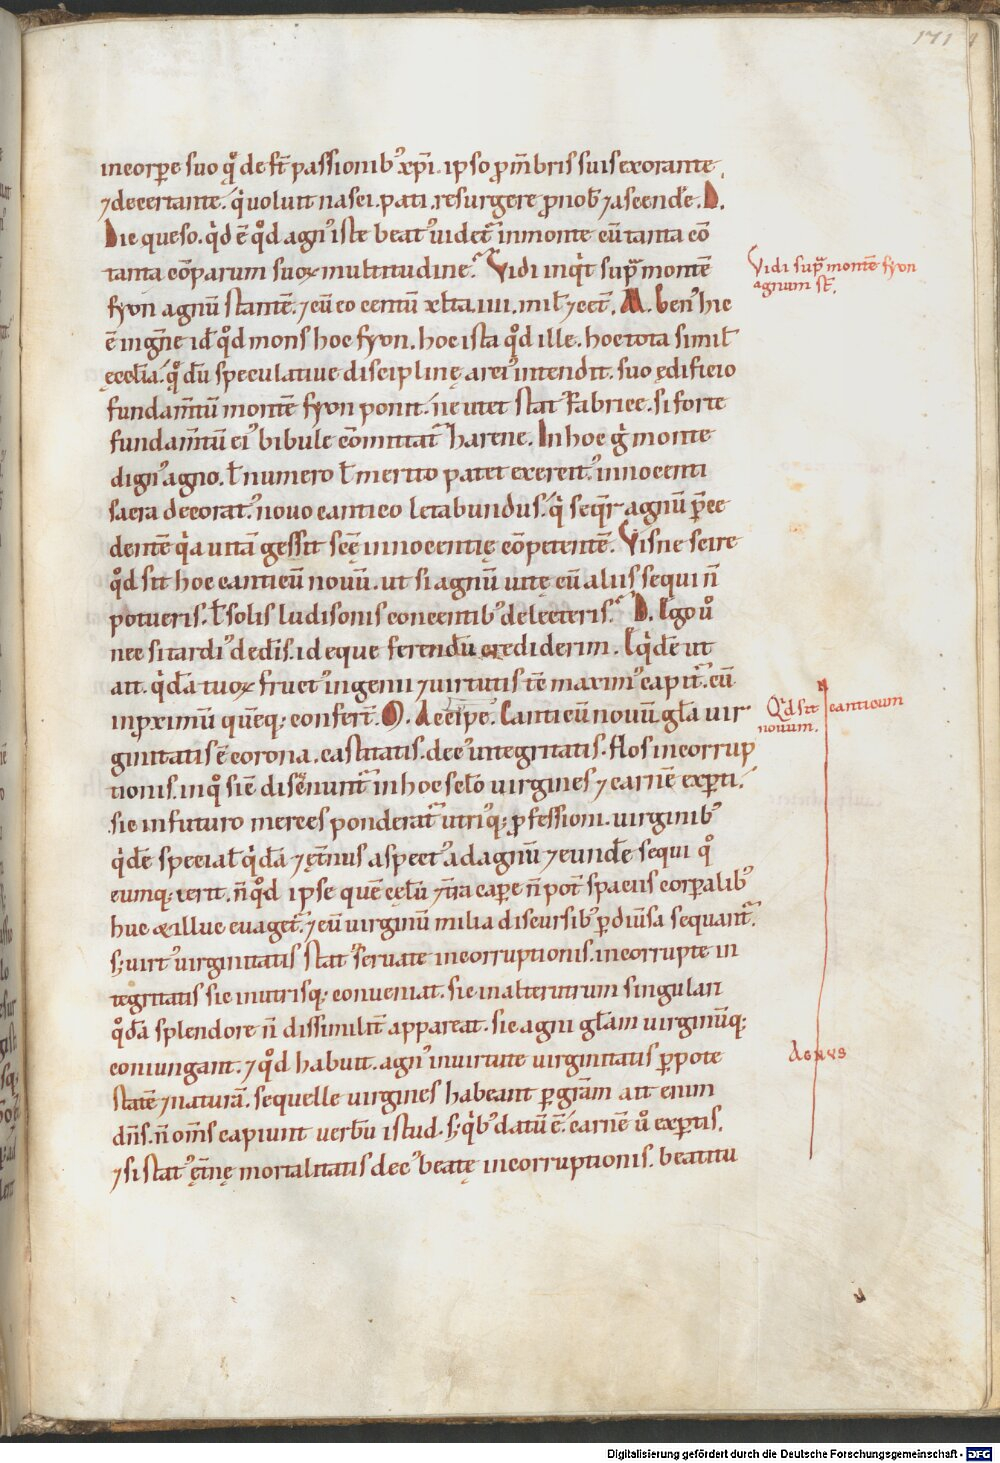 171
incorp̄e suo qͦ de st̄ passionib᾽ xp̄i. ipso p̄ m̄bris suis exorante,
⁊ decertante. q̇ voluit nasci. pati. resurgere p̄ nob̄ ⁊ ascend̄e. D.
Dic queso. qd̄ ē qͦd agn᾽ iste beat᾽ uidet᷑ in monte cū tanta cō
tanta cōparum suoꝝ multitudine. Vidi inq̇t supᷓ montē
syon agnū stantē. ⁊ cū eo centū xl̄ta. iiii. mil̄ ⁊ cet̄. M. ben᾽ hic
ē in gn̄e id̄ qͦd mons hoc syon. hoc ista qͦd ille. hoc tota simil̄
ęccl̄ia. qͦ dū speculatiue disciplinę arci᾽ intendit. suo ędificio
fundam̄tū montē syon ponit. ne utet stat᾽ fabrice. si forte
fundam̄tū ei᾽ bibule cōmittat᷑ harene. In hoc g̊ monte
dign᾽ agno. l̄ numero l̄ merito patet exercit᾽ innocenti
sacra decorat᾽. nouo cantico letabundus. q̇ seqr̄ agnū p̄ce
dentē q̇a uitā gessit scę̄ innocentię cōpetentē. Visne scire
qͦd sit hoc canticū nouū. ut si agnū uitę cū aliis sequi n̄
potueris. l̄ solis ludisonis concentib᾽ delecteris. D. Ego uͦ
nec si tardi᾽ ded̄is. id eque ferendū crediderim. Eq̇dē ut
ait. q̇dā tuoꝝ fruct᾽ ingenii ⁊ uirtutis tē maxim᾽ capit᷑. cū
in p̄ximū quēq; confert᷑. M. Accipe. Canticū nouū gl̄a vir
ginitatis ē corona. castitatis. dec᾽ integritatis. flos incorrup
tionis. in qͦ sic̄ discernunt᷑ in hoc sclo᷑ virgines ⁊ carnē exp̄ti.
sic in futuro merces ponderat᷑ utri᾽q; p̄fessioni. uirginib᾽
q̇dē special̄ q̇dā ⁊ ęt̄nus aspect᾽ ad agnū ⁊ eundē sequi qͦ
cumq; ierit. n̄ qͦd ipse quē cęlū ⁊ t̄ra cap̄e n̄ pot̄ spaciis corp̄alib᾽
huc & illuc euaget᷑. ⁊ cū virginū milia discursib᾽ p̄ diūsa sequant᷑.
s; uirt᾽ uirginitatis stat᾽ seruate incorruptionis. incorrupte in
tegritatis sic in utrisq; conueniat. sic in alterutrum singulari
qͦdā splendore n̄ dissimilit᷑ appareat. sic agni gl̄am uirginūq;
coniungant. ⁊ qͦd habuit. agn᾽ in uirtute uirginitatis p̄ pote
statē ⁊ naturā. sequelle uirgines habeant p̄ grām ait enim
dn̄s. n̄ om̄s capiunt uerbū istud. s; q̇b᾽ datū ē. carnē uͦ exp̄tis.
⁊ si stat᾽ ęt̄nę mortalitatis dec᾽ beatę incorruptionis. beatitu
Vidi supᷓ montē syon
agnum st̄.
Qd̄ sit canticum
nouum.
Agnus
Digitalisierung gefördert durch die Deutsche Forschungsgemeinschaft - DFG